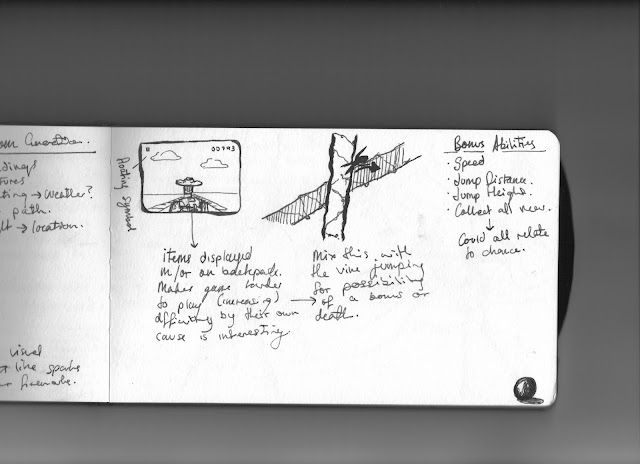 Weather?
path.
→ location.
visual
like sparks
Floating Symbol
00793
items displayed
in/or on backpack.
Makes game harder
to play (increasing) →
difficulty by their own
cause is interesting.
Mix this with
the vine jumping
for possibility
of a bonus or
death.
Bonus Abilities
· Speed
· Jump Distance.
· Jump Height.
· Collect all near.
↓
Could all relate
to chance.